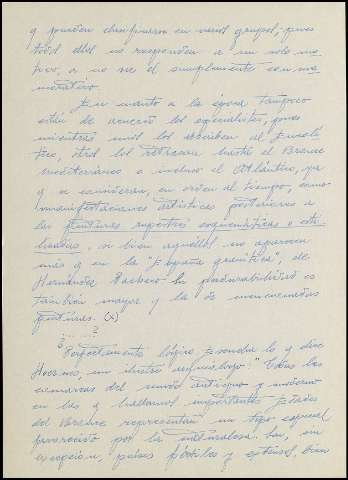 y pueden clasificarse en varios grupos, pues
todos ellos no responden a un sólo mo-
tivo, a no ser el simplemente conme
morativo.
En cuanto a la época tampoco
están de acuerdo los especialistas, pues
mientras unos los adscriben al Eneolí
tico, otros los retrasan hasta el Bronce
mediterráneo e incluso el Atlántico, ya
que se consideran, en orden al tiempo, como
manifestaciones artísticas posteriores a
las pinturas rupestres esquemáticas o esti
lizadas, si bien aquéllos no aparecen
más que en la "España granítica", de
Hernández Pacheco. La perdurabilidad es
también mayor que la de mencionadas
pinturas. (x)
Perfectamente lógico resulta lo que dice
Hoernes, un ilustre arqueólogo: "Todas las
comarcas del mundo antiguo y moderno
en las que hallamos importantes Edades
del Bronce representan un tipo especial
favorecido por la naturaleza. Son, sin
excepción, países fértiles y extensos, bien